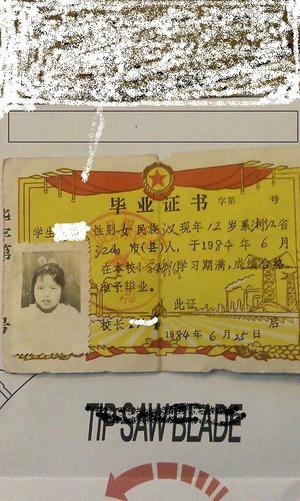 毕业证书 字第 号
学生 性别女民族汉现年12岁系浙江省
市(县)人，于1984年6月
在本校 学习期满，成绩合格
准予毕业。
此证
校长
1984年6月25日
TIP SAW BLADE